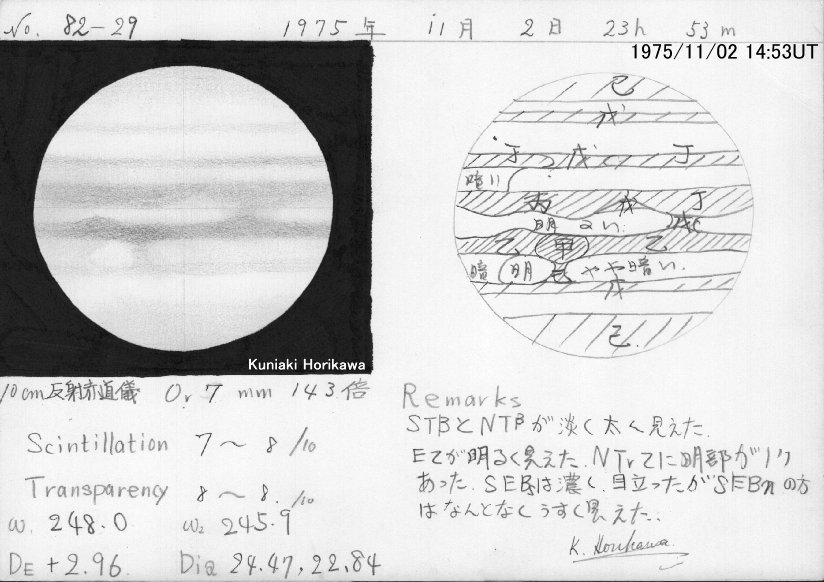 No. 82-29 1975年 11月 2日 23h 53m
1975/11/02 14:53UT
己
戊
丁 戊 丁
暗い
丙 戊 丁
明るい 戊
乙 甲 乙
暗 明 やや暗い
戊
己
Kuniaki Horikawa
10cm反射赤道儀 Or 7mm 143倍
Scintillation 7〜8/10
Transparency 8〜8/10
ω₁ 248.0 ω₂ 245.9
DE +2.96 Dia 24.47, 22.84
Remarks
STBとNTBが淡く太く見えた.
EZが明るく見えた. NTrZに明部が1つ
あった. SEBsは濃く、目立ったがSEBnの方
はなんとなくうすく見えた.
K. Horikawa